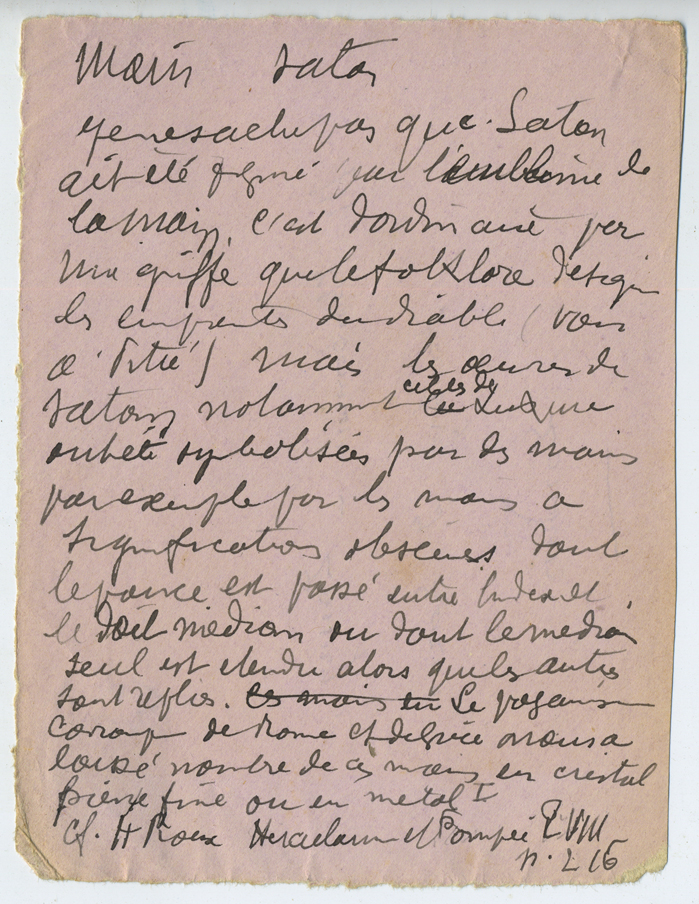 Main Satan
Je ne sache pas que Satan
ait été figuré par l'emblème de
la main, c'est d'ordinaire par
une griffe que le folklore désigne
les empreintes du diable (voir
) mais les œuvres de
Satan notamment celles de luxure
ont été symbolisées par des mains
par exemple par les mains a
signification obscènes dont
le pouce est passé entre Index et
le doit médian ou dont le median
seul est etendu alors que les autres
sont repliés. les mains en Le paganisme
de Rome et de Grèce nous a
laissé nombre de ces mains en cristal
pierre fine ou en metal I
Cf. H Roux Herculanum et Pompéi T VIII
p. 216